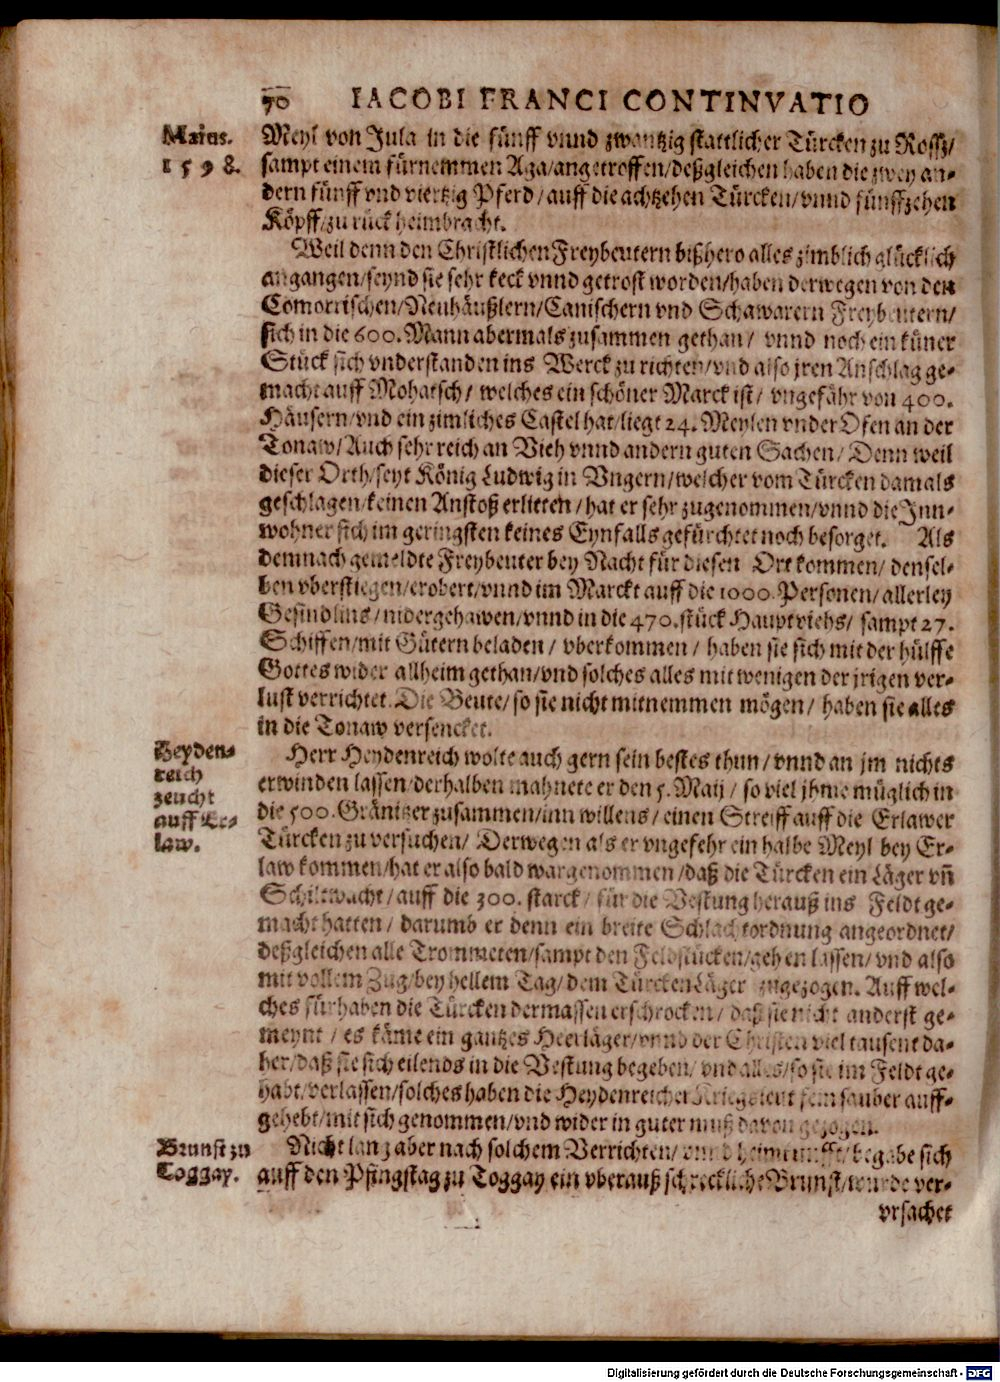 70 IACOBI FRANCI CONTINVATIO
Maius.
1598.
Meyl von Jula in die fünff vnnd zwantzig stattlicher Türcken zu Rossz/
sampt einem fürnemmen Aga/angetroffen/deßgleichen haben die zwey an-
dern fünff vnd viertzig Pferd/auff die achtzehen Türcken/vnnd fünffzehen
Köpff/zu rück heimbracht.
Weil denn den Christlichen Freybeutern bißhero alles zimblich glücklich
angangen/seynd sie sehr keck vnnd getrost worden/haben derwegen von den
Comorrischen/Neuhäußlern/Canischern vnd Schawarern Freybeutern/
sich in die 600. Mann abermals zusammen gethan/ vnnd noch ein küner
Stück sich vnderstanden ins Werck zu richten/vnd also jren Anschlag ge-
macht auff Mohatsch/ welches ein schöner Marck ist/ vngefähr von 400.
Häusern/vnd ein zimliches Castel hat/liegt 24. Meylen vnder Ofen an der
Tonaw/Auch sehr reich an Vieh vnnd andern guten Sachen/ Denn weil
dieser Orth/seyt König Ludwig in Vngern/welcher vom Türcken damals
geschlagen/keinen Anstoß erlitten/ hat er sehr zugenommen/vnnd die Jnn-
wohner sich im geringsten keines Eynfalls gefürchtet noch besorget. Als
demnach gemeldte Freybeuter bey Nacht für diesen Ort kommen/ densel-
ben vberstiegen/erobert/vnnd im Marckt auff die 1000. Personen/allerley
Gesindlins/nidergehawen/vnnd in die 470. stück Hauptviehs/ sampt 27.
Schiffen/mit Gütern beladen/ vberkommen/ haben sie sich mit der hülffe
Gottes wider allheim gethan/vnd solches alles mit wenigen der jrigen ver-
lust verrichtet. Die Beute/so sie nicht mitnemmen mögen/ haben sie alles
in die Tonaw versencket.
Heyden-
reich
zeucht
auff Er-
law.
Herr Heydenreich wolte auch gern sein bestes thun/vnnd an jm nichts
erwinden lassen/derhalben mahnete er den 5. Maij/ so viel jhme müglich in
die 500. Gräntzer zusammen/inn willens/einen Streiff auff die Erlawer
Türcken zu versuchen/ Derwegen als er vngefehr ein halbe Meyl bey Er-
law kommen/hat er also bald wargenommen/daß die Türcken ein Läger vn̄
Schiltwacht/auff die 300. starck/ für die Vestung herauß ins Feldt ge-
macht hatten/ darumb er denn ein breite Schlachtordnung angeordnet/
deßgleichen alle Trommeten/sampt den Feldstücken/gehen lassen/vnd also
mit vollem Zug/bey hellem Tag/dem Türcken Läger zugezogen. Auff wel-
ches fürhaben die Türcken dermassen erschrocken/ daß sie nicht anderst ge-
meynt/ es käme ein gantzes Heerläger/vnnd der Christen viel tausent da-
her/daß sie sich eilends in die Vestung begeben/ vnd alles/so sie im Feldt ge-
habt/verlassen/solches haben die Heydenreicher Kriegsleut fein sauber auff-
gehebt/mit sich genommen/vnd wider in guter muß davon gezogen.
Brunst zu
Toggay.
Nicht lang aber nach solchem Verrichten/ vnnd heimkunfft/begabe sich
auff den Pfingstag zu Toggay ein vberauß schreckliche Brunst/wurde ver-
vrsachet
Digitalisierung gefördert durch die Deutsche Forschungsgemeinschaft - DFG